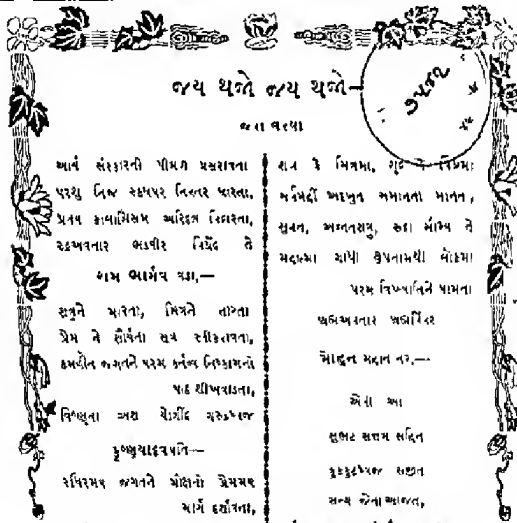 જય થજો જય થજો—
૭૫૭૨
જરા વરયા
આર્ય સંસ્કારની પીમળ પ્રસરાવતા
પરશુ નિજ સ્કંધપર નિરંતર ધારતા,
પ્રલય કાલાગ્નિસમ અરિદળ વિદારતા,
રુદ્રઅવતાર ભડવીર વિપ્રેંદ્ર તે
રામ ભાર્ગવ વડા,—
શત્રુને મારતા, મિત્રને તારતા
પ્રેમ ને શૌર્યના સૂત્ર સ્વીકારાવતા,
કર્મહીન જગતને પરમ કર્તવ્ય નિષ્કામનો
પાઠ શીખવાડતા,
વિષ્ણુના અંશ યોગીંદ્ર ગરુડધ્વજ
કૃષ્ણયાદવપતિ—
રુધિરમય જગતને મોક્ષનો પ્રેમમય
માર્ગ દર્શાવતા,
શત્રુ કે મિત્રમાં, શૂદ્ર ને વિપ્રમાં
સર્વમહીં અદભુત સમાનતા માનતા,
સુવ્રત, અજાતશત્રુ, સદા સૌમ્ય ને
મહાત્મા ગાંધી ઉપનામથી લોકમાં
પરમ વિખ્યાતિને પામતા
બ્રહ્મઅવતાર બ્રહ્મર્ષિવર
મોહન મહાન નર,—
એવા આ
સુભટ સત્તમ સહિત
કુક્કુટધ્વજ સહીત
સન્ય જેના અજિત,